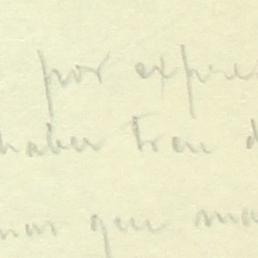 por expres
haber tren d
mas que ma